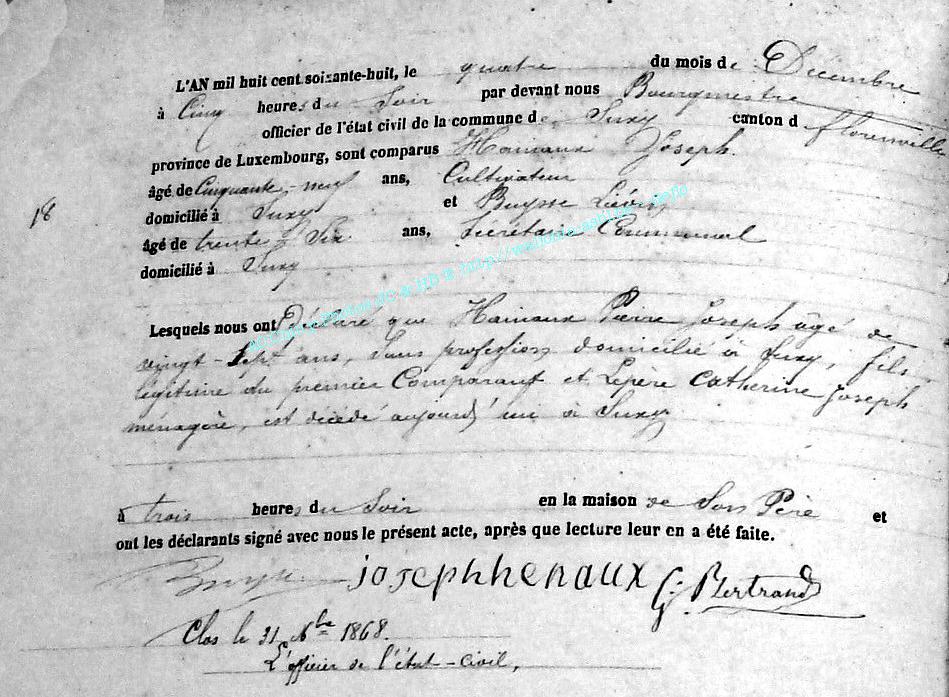 L'AN mil huit cent soixante-huit, le quatre du mois de Décembre
à Cinq heures du Soir par devant nous Bourgmestre
officier de l'état civil de la commune de Suxy canton d florenville
province de Luxembourg, sont comparus Hainaux Joseph.
âgé de Cinquante-neuf ans, Cultivateur
domicilié à Suxy et Buysse Liévin,
âgé de trente Six ans, Secrétaire Communal
domicilié à Suxy
18
Lesquels nous ont Déclaré que Hainaux Pierre Joseph âgé de
vingt-sept ans, Sans profession domicilié à Suxy, fils
légitime du premier Comparant et Lepère Catherine Joseph
ménagère, est décédé aujourd'hui à Suxy
à trois heures du Soir en la maison de Son Père et
ont les déclarants signé avec nous le présent acte, après que lecture leur en a été faite.
Buysse josephhenaux G. Bertrand
Clos le 31 Xbre 1868.
L'officier de l'état-civil,